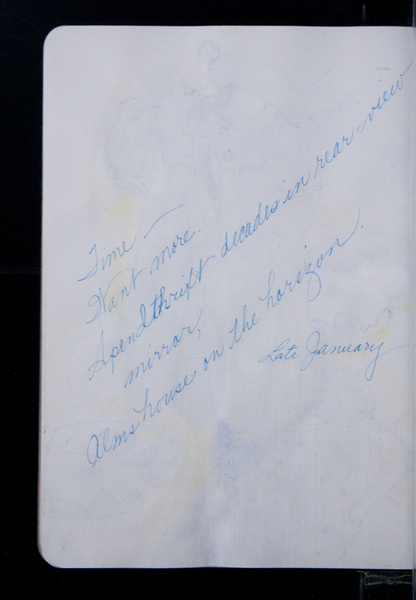 Time —
Want more.
Spendthrift decades in rear-view
mirror,
Almshouse on the horizon.
Late January